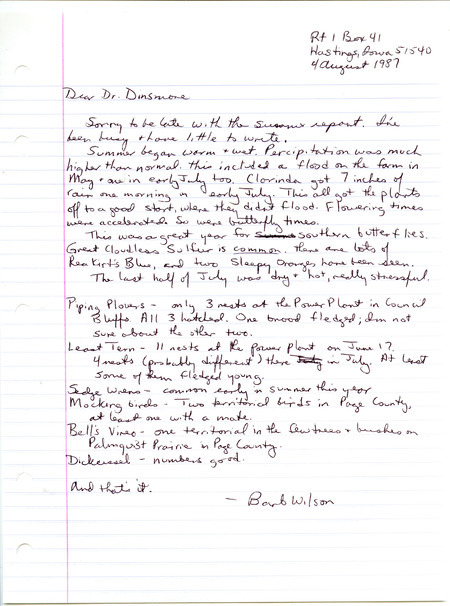 Rt 1 Box 41
Hastings, Iowa 51540
4 August 1987
Dear Dr. Dinsmore
Sorry to be late with the summer report. I've
been busy & have little to write.
Summer began warm & wet. Percipitation was much
higher than normal. This included a flood on the farm in
May & one in early July too. Clarinda got 7 inches of
rain one morning in early July. This all got the plants
off to a good start, where they didn't flood. Flowering times
were accelerated. So were butterfly times.
This was a great year for southern butterflies.
Great Cloudless Sulfur is common. There are lots of
Reakirt's Blue, and two Sleepy Oranges have been seen.
The last half of July was dry & hot, really stressful.
Piping Plovers - only 3 nests at the Power Plant in Council
Bluffs. All 3 hatched. One brood fledged; I'm not
sure about the other two.
Least Tern - 11 nests at the power plant on June 17.
4 nests (probably different) there in July. At least
some of them fledged young.
Sedge Wrens - common early in summer this year
Mockingbirds - Two territorial birds in Page County,
at least one with a mate.
Bell's Vireo - one territorial in the few trees & bushes on
Palmquist Prairie in Page County.
Dickcissel - numbers good.
And that's it.
- Barb Wilson